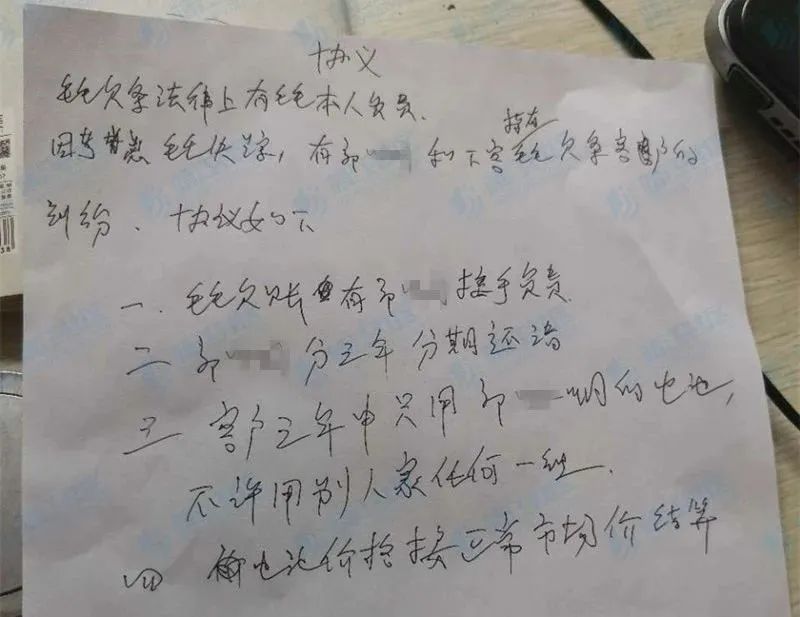 协议
毛毛欠条法律上有毛毛本人负责.
因考 毛毛失踪，有郭 和下客持有毛毛欠条客户的
纠纷、协议如下
一. 毛毛欠账有郭 接手负责.
二 郭 分三年分期还清
三 客户三年中只用郭 的电池，
不许用别人家任何一组.
四 电池价格按正常市场价结算